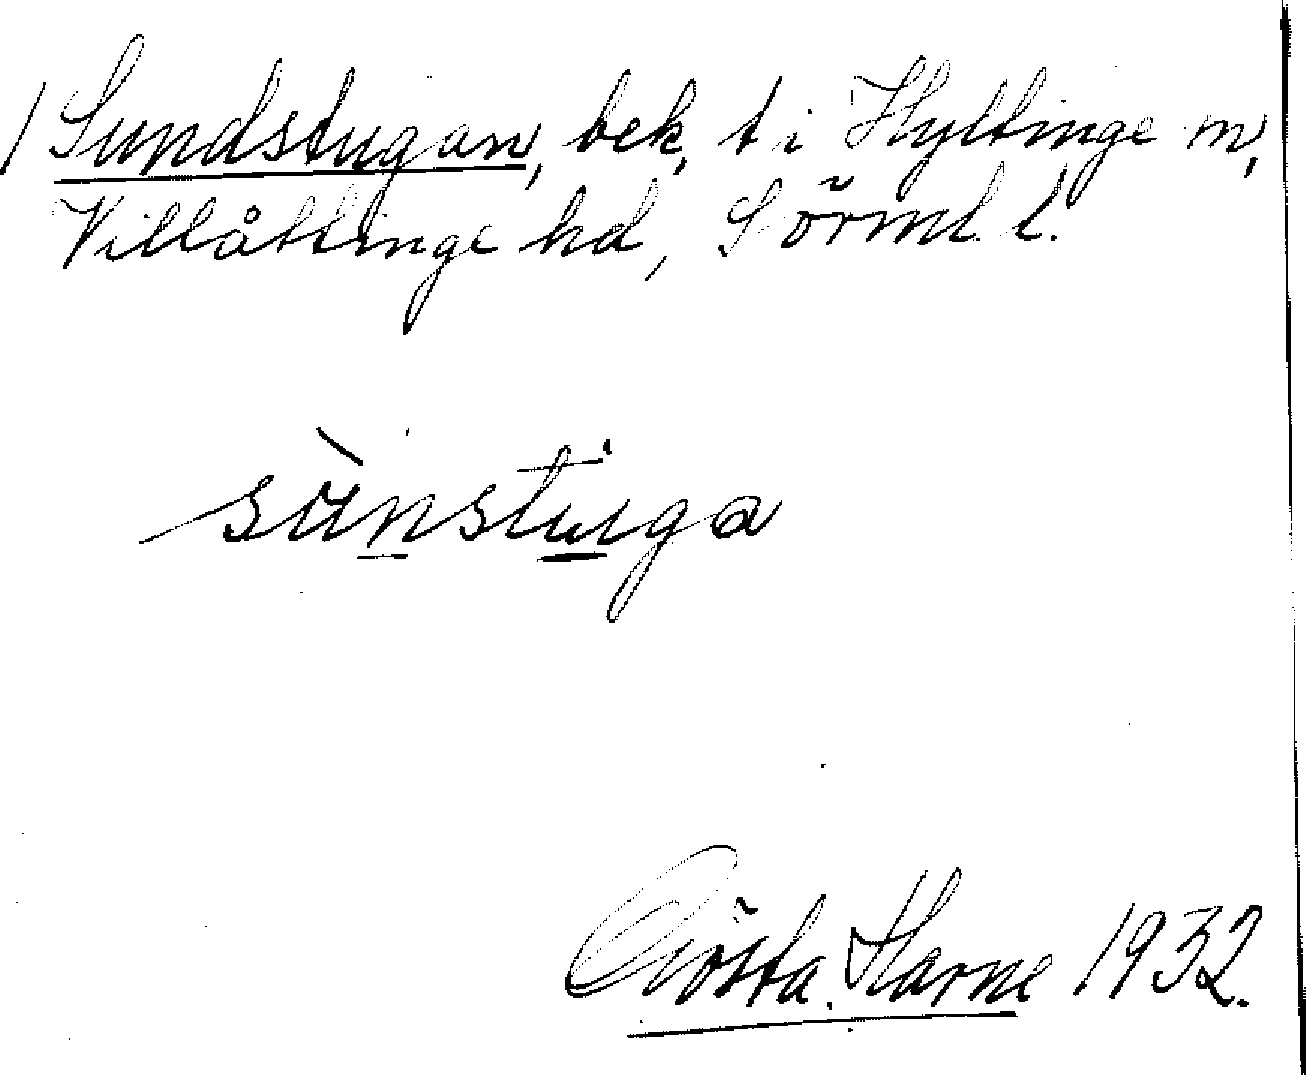 / Sundstugan, bek, t i Hyltinge sn,
Villåttinge hd, Sörml. l.
sùnstuga
Gösta Harne 1932.